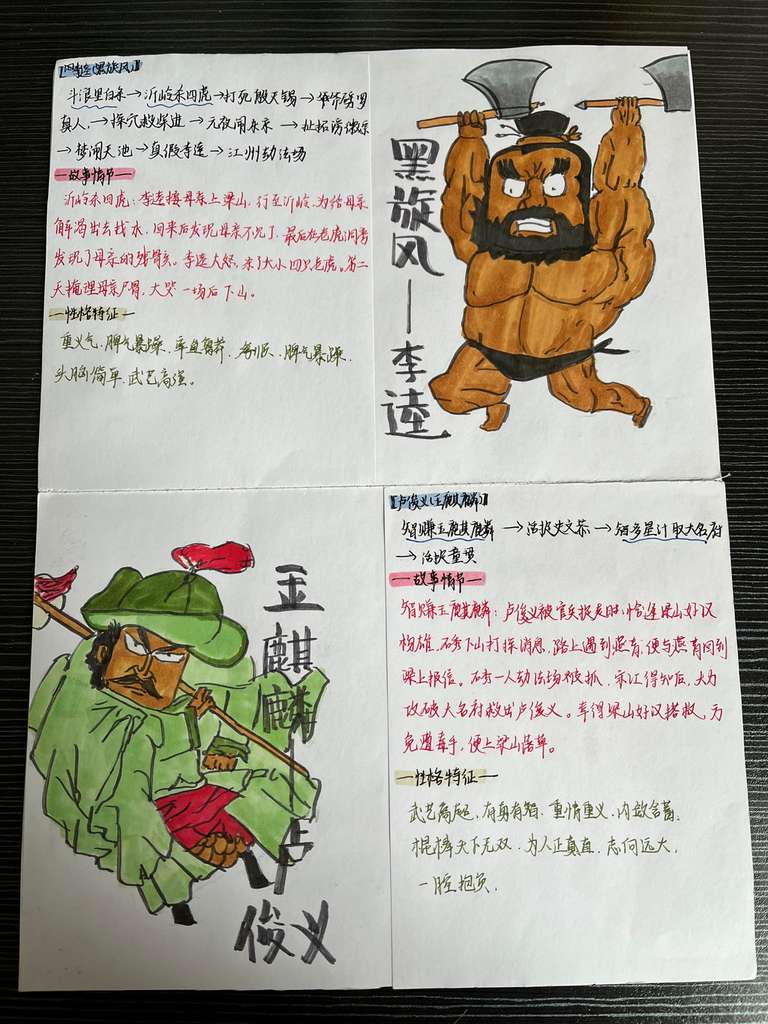 【李逵(黑旋风)】
斗浪里白条→沂岭杀四虎→打死殷天锡→斧劈罗
真人→探穴救柴进→元夜闹东京→扯招谤徽宗
→梦闹天池→真假李逵→江州劫法场
—故事情节—
沂岭杀四虎：李逵接母亲上梁山，行至沂岭，为给母亲
解渴出去找水，回来后发现母亲不见了，最后在老虎洞旁
发现了母亲的残骸。李逵大怒，杀了大小四只老虎。第二
天掩埋母亲尸骨，大哭一场后下山。
—性格特征—
重义气、脾气暴躁、率直鲁莽、脾气暴躁、
头脑简单、武艺高强。
黑旋风—李逵
玉麒麟—卢俊义
【卢俊义(玉麒麟)】
智赚玉麒麟→活捉史文恭→智多星计取大名府
→活捉童贯
—故事情节—
智赚玉麒麟：卢俊义被官兵捉走时，恰逢梁山好汉
杨雄、石秀下山打探消息，路上遇到燕青，便与燕青回到
梁上报信。石秀一人劫法场被抓，宋江得知后，大为
攻破大名府救出卢俊义。幸得梁山好汉搭救，为
免遭毒手，便上梁山落草。
—性格特征—
武艺高超、有勇有智、重情重义、内敛含蓄、
棍棒天下无双、为人正真直、志向远大、
一腔抱负、